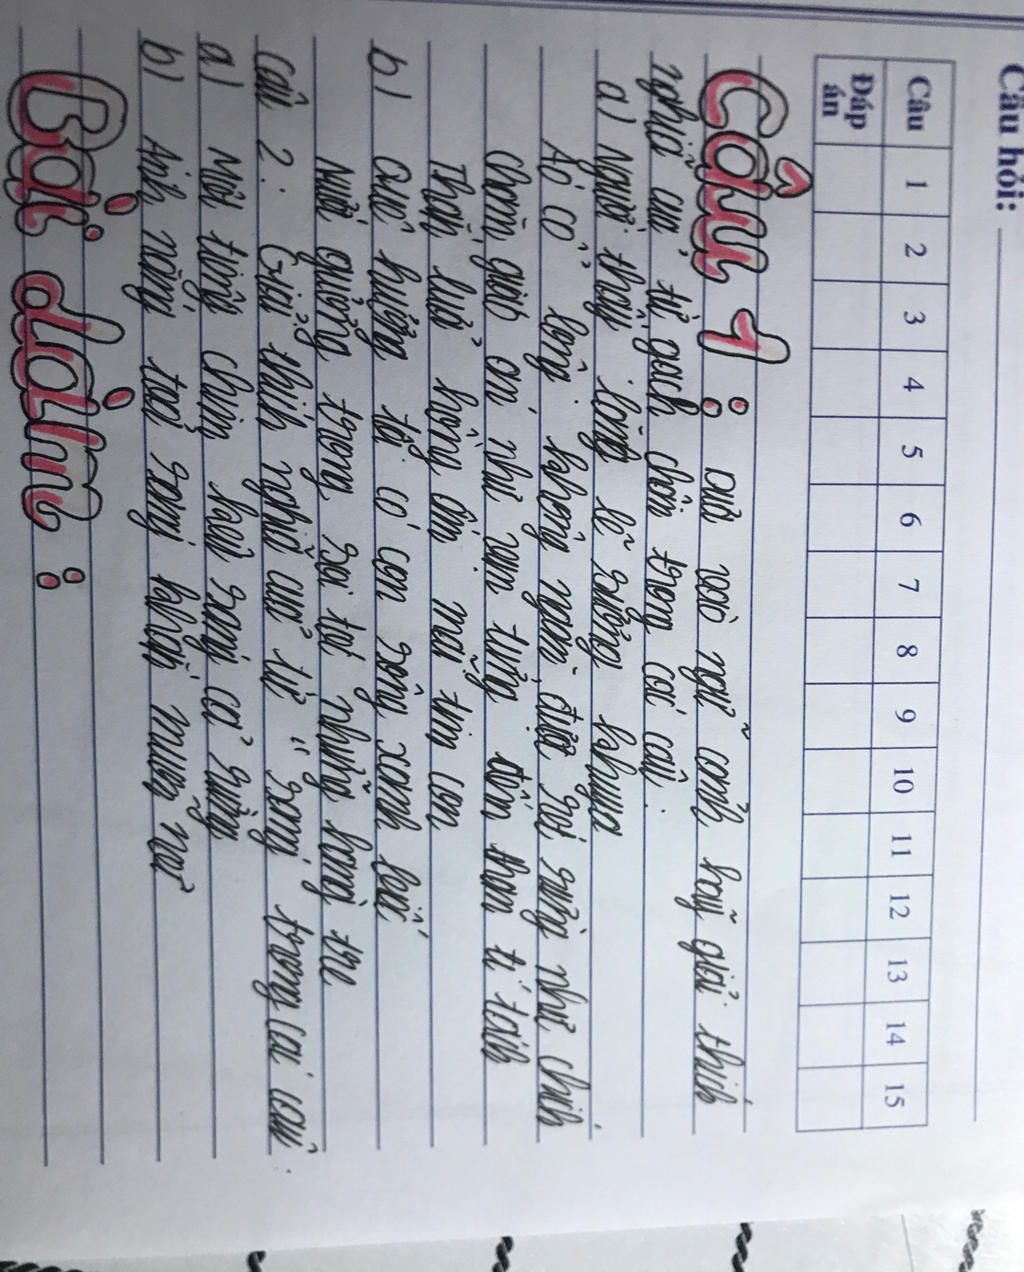 Câu hỏi:
Câu 1 2 3 4 5 6 7 8 9 10 11 12 13 14 15
Đáp án
Câu 1 : dựa vào ngữ cảnh hãy giải thích
nghĩa của từ gạch chân trong các câu.
a) Người thấy lòng lẽ sương khuya
Ao cỏ lòng không ngăn được
Chòm giót ơn như tưng đốm than tí tách
Thần lửa hồng ấm mãi tim con
b) Quê hương tôi có con sông xanh biếc
Nước gương trong soi tóc những hàng tre
Câu 2 : Giải thích nghĩa của từ " sang, trong các câu.
a) Một tiếng chim kêu sang cả rừng
b) Anh nắng sang mưa nơi
Bài dành :